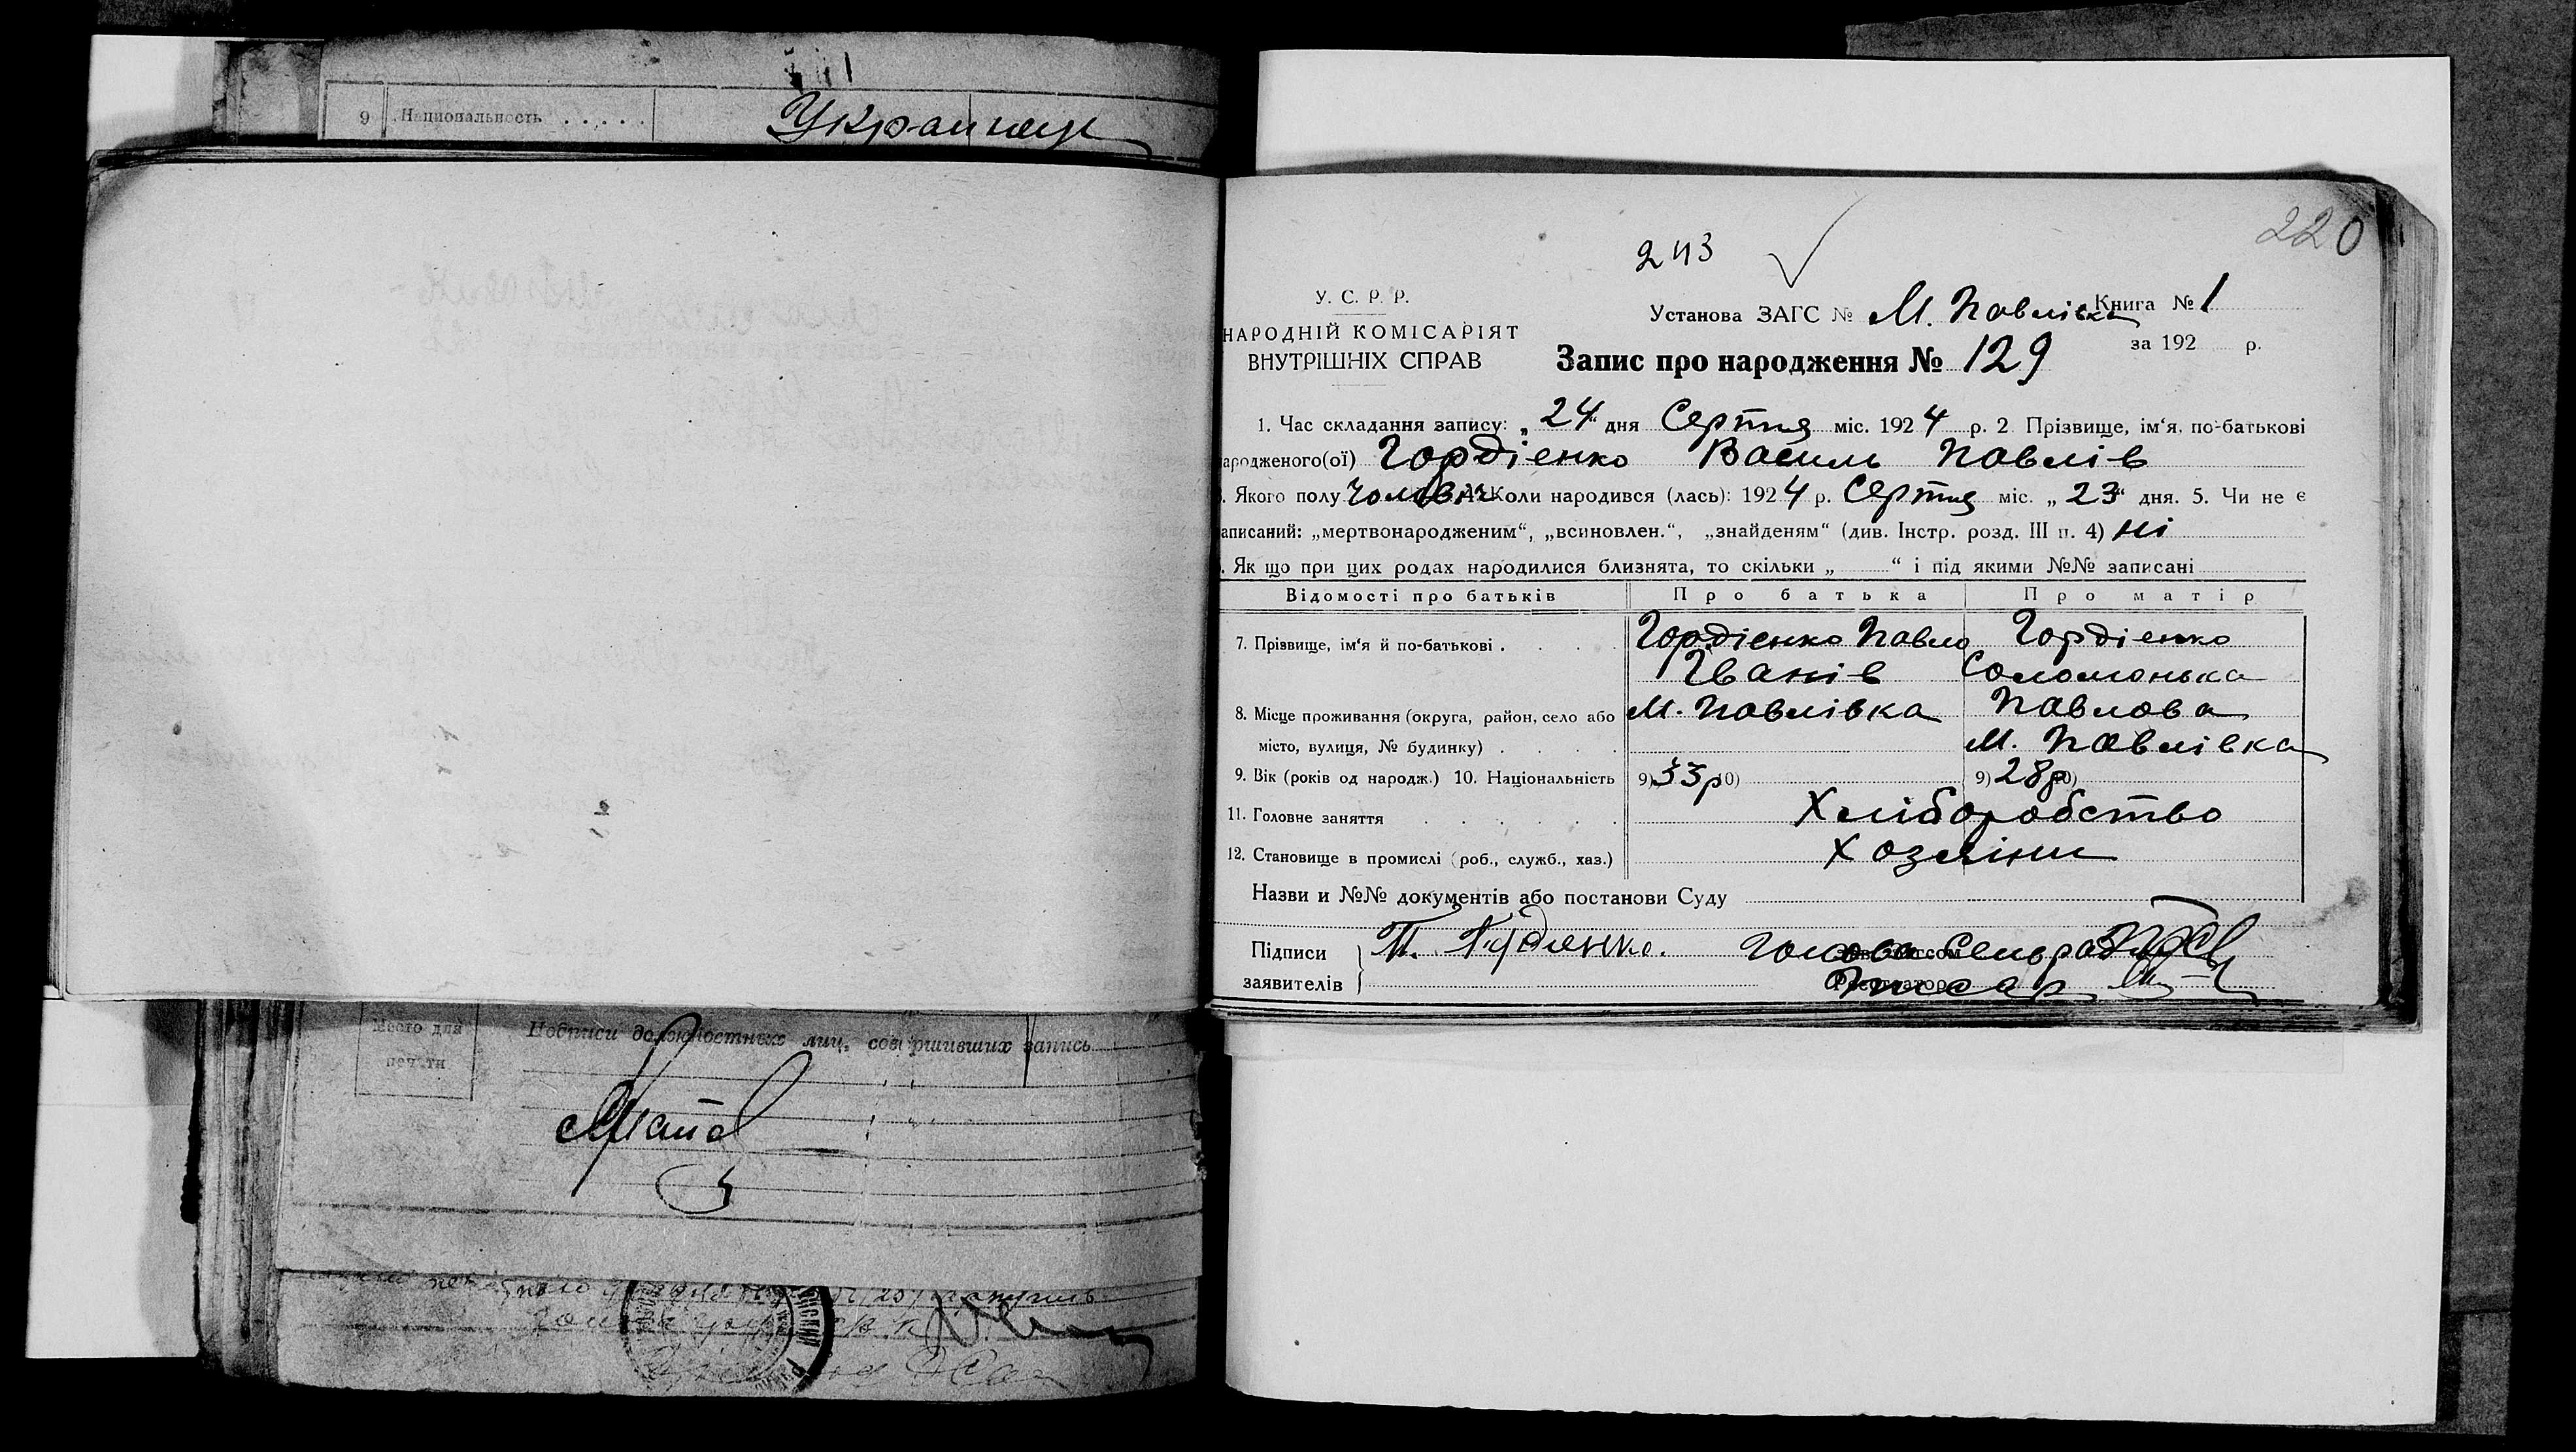 9 Национальность . . . . .
Украинец
220
243
У. С. Р. Р.
НАРОДНІЙ КОМІСАРІЯТ
ВНУТРІШНІХ СПРАВ
Установа ЗАГС № М. Павлівка Книга № 1
за 192 р.
Запис про народження № 129
1. Час складання запису: „24“ дня Серпня міс. 1924 р. 2 Прізвище, ім‘я, по-батькові
ародженого(ої) Гордіенко Василь Павлів
. Якого полу чоловіч 4. Коли народився (лась): 1924 р. Серпня міс. „23“ дня. 5. Чи не є
аписаний: „мертвонародженим“, „всиновлен.“, „знайденям“ (див. Інстр. розд. III п. 4) ні
. Як що при цих родах народилися близнята, то скільки „ “ і під якими №№ записані
Відомості про батьків Про батька Про матір
7. Прізвище, ім‘я й по-батькові . . . . Гордіенко Павло Гордіенко
Іванів Соломонька
8. Місце проживання (округа, район, село або М. Павлівка Павлова
місто, вулиця, № будинку) . . . . М. Павлівка
9. Вік (років од народж.) 10. Національність 9) 33р 10) 9) 28р 10)
11. Головне заняття . . . . . . Хліборобство
12. Становище в промислі (роб., служб., хаз.) Хозяіни
Назви и №№ документів або постанови Суду
Підписи П. Гордіенко. Голова Сельради
заявителів Писар
Место для
печати
Подписи должностных лиц, совершивших запись